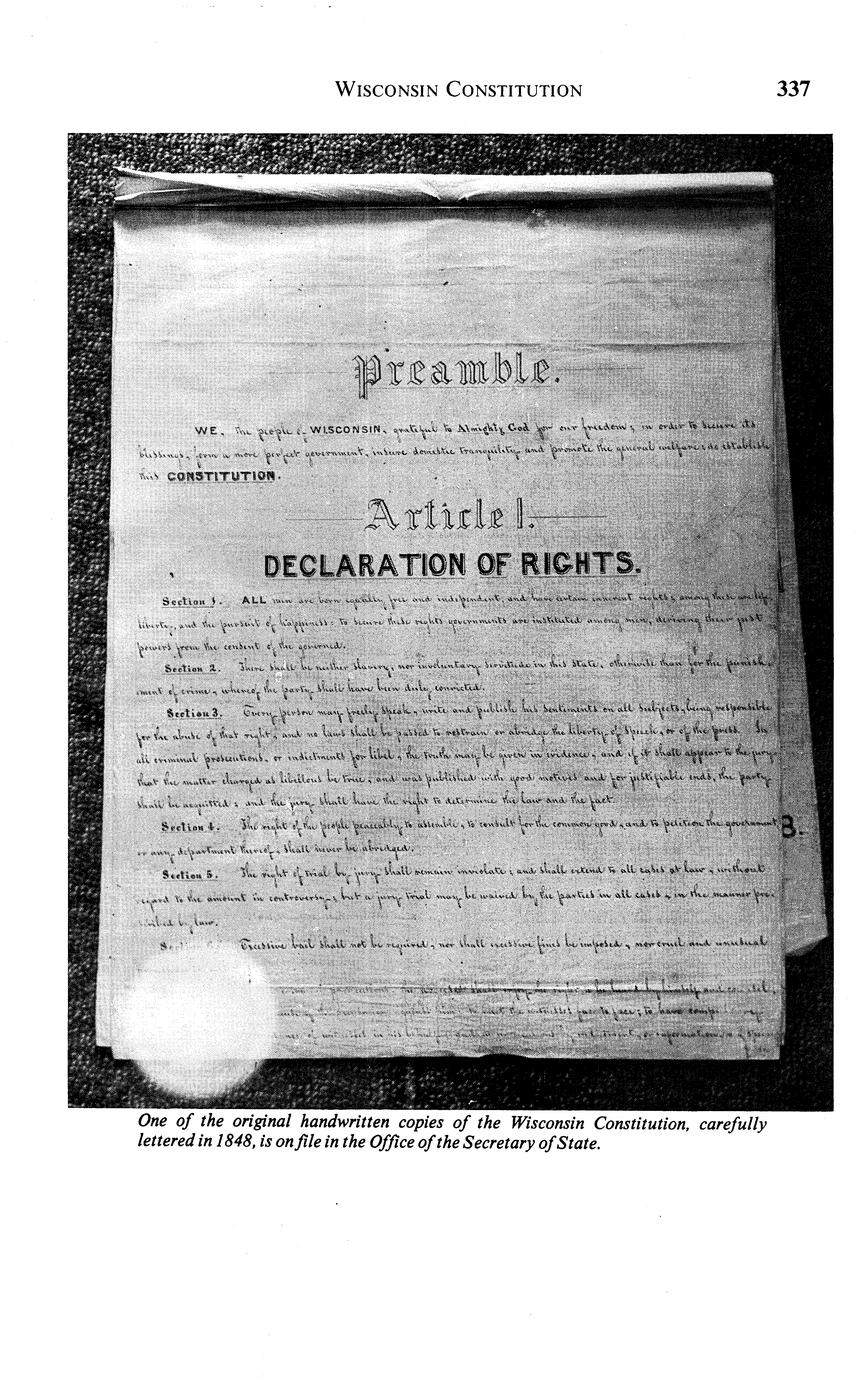 WISCONSIN CONSTITUTION 337
Preamble.
WE, the people of WISCONSIN, grateful to Almighty God for our freedom; in order to secure its
blessings, form a more perfect government, insure domestic tranquility and promote the general welfare; do establish
this CONSTITUTION.
Article 1.
DECLARATION OF RIGHTS.
Section 1. ALL men are born equally free and independent, and have certain inherent rights; among these are life,
liberty, and the pursuit of happiness: to secure these rights governments are instituted among men, deriving their just
powers from the consent of the governed.
Section 2. There shall be neither slavery, nor involuntary servitude in this State, otherwise than for the punish-
ment of crime, whereof the party shall have been duly convicted.
Section 3. Every person may freely speak, write and publish his sentiments on all subjects, being responsible
for the abuse of that right, and no laws shall be passed to restrain or abridge the liberty of speech, or of the press. In
all criminal prosecutions, or indictments for libel, the truth may be given in evidence, and if it shall appear to the jury
that the matter charged as libellous be true, and was published with good motives and for justifiable ends, the party
shall be acquitted; and the jury shall have the right to determine the law and the fact.
Section 4. The right of the people peaceably to assemble, to consult for the common good, and to petition the government
or any department thereof, shall never be abridged.
B.
Section 5. The right of trial by jury shall remain inviolate; and shall extend to all cases at law, without
regard to the amount in controversy; but a jury trial may be waived by the parties in all cases, in the manner pre-
scribed by law.
Excessive bail shall not be required, nor shall excessive fines be imposed, nor cruel and unusual
the accused shall enjoy the right to be heard by himself and
to meet the witnesses face to face; to have
of witnesses in his behalf or information,
One of the original handwritten copies of the Wisconsin Constitution, carefully
lettered in 1848, is on file in the Office of the Secretary of State.